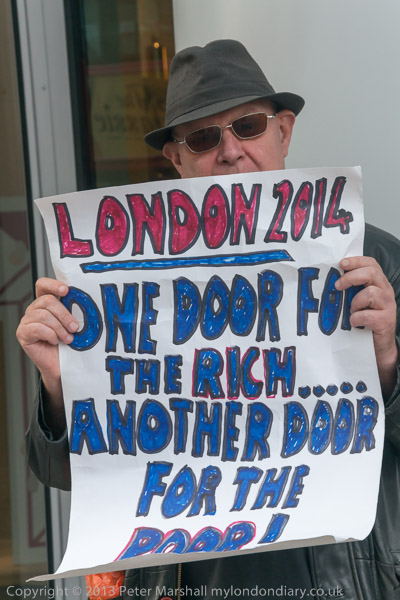 LONDON 2014
ONE DOOR FOR
THE RICH.....
ANOTHER DOOR
FOR THE
POOR!
Copyright © 2013 Peter Marshall mylondondiary.co.uk